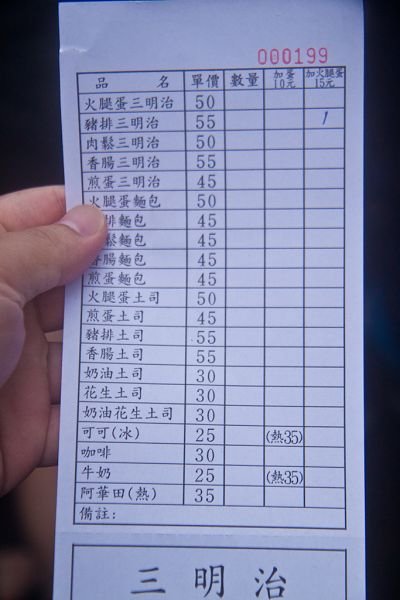 000199
品名 單價 數量 加蛋10元 加火腿蛋15元
火腿蛋三明治 50
豬排三明治 55 1
肉鬆三明治 50
香腸三明治 55
煎蛋三明治 45
火腿蛋麵包 50
排麵包 45
鬆麵包 45
香腸麵包 45
煎蛋麵包 45
火腿蛋土司 50
煎蛋土司 45
豬排土司 55
香腸土司 55
奶油土司 30
花生土司 30
奶油花生土司 30
可可(冰) 25 (熱35)
咖啡 30
牛奶 25 (熱35)
阿華田(熱) 35
備註:
三明治